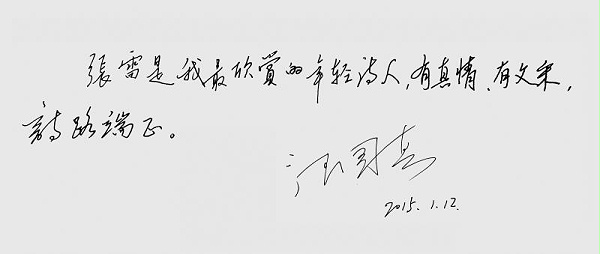 張雷是我最欣賞的年轻诗人,有真情、有文采,
詩路端正。
汪国真
2015.1.12.